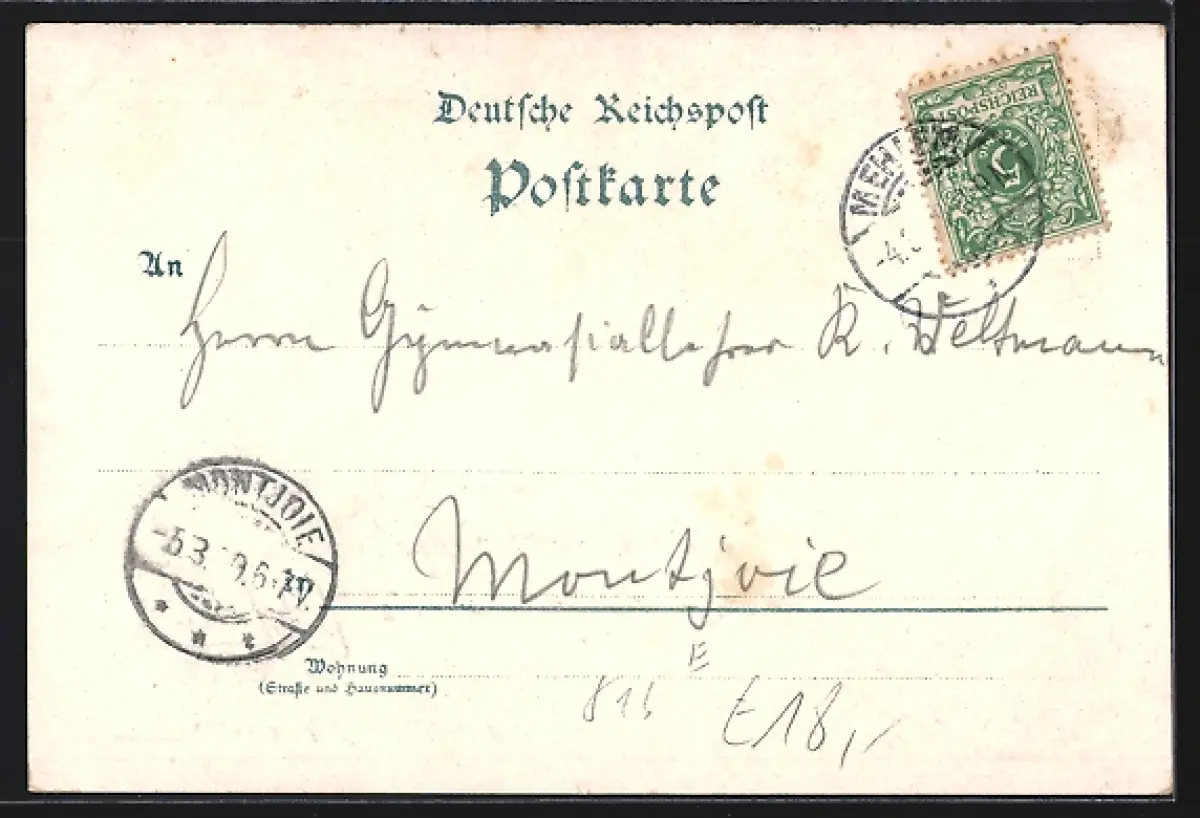 Deutsche Reichspost
Postkarte
REICHSPOST
5
MEH
-4.
An
Herrn Gymnasiallehrer K. Weltmann
MONTJOIE
-5.3. 9.6-7V.
in
Montjoie
Wohnung
(Straße und Hausnummer)
E
816
E18,-